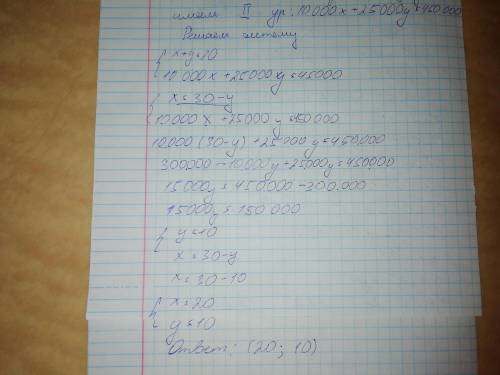 имеем II ур: 10 000x + 25000y = 450 000
Решаем систему
{ x + y = 30
10 000x + 25000y = 45000
{ x = 30 - y
10000x + 25000y = 450 000
10 000 (30 - y) + 25000y = 450.000
300.000 - 10.000y + 25.000y = 450.000
15000y = 450.000 - 300.000
15000y = 150 000
{ y = 10
x = 30 - y
x = 30 - 10
{ x = 20
y = 10
Ответ: (20; 10)